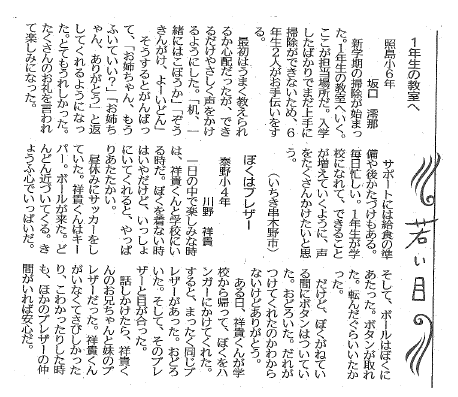 若い目
１年生の教室へ
照島小６年
坂口　澪那
新学期の掃除が始まっ
た。１年生の教室へいく。
ここが担当場所だ。入学
したばかりでまだ上手に
掃除ができないため、６
年生２人がお手伝いをす
る。
最初はうまく教えられ
るか心配だったが、でき
るだけやさしく声をかけ
るようにした。「机、一
緒にはこぼうか」「ぞう
きんがけ、よーいどん」
そうするとがんばっ
て、「お姉ちゃん、もう
ふいていい？」「お姉ち
ゃん、ありがとう」と返
してくれるようになっ
た。とてもうれしかった。
たくさんのお礼を言われ
て楽しみになった。
サポートには給食の準
備や後かたづけもある。
毎日忙しい。１年生が学
校になれて、できること
が増えていくように、声
をたくさんかけたいと思
う。
（いちき串木野市）
ぼくはブレザー
泰野小４年
川野　祥貴
一日の中で楽しみな時
は、祥貴くんと学校にい
る時だ。ぼくを着ない時
はいやだけど、いっしょ
にいてくれると、やっぱ
りあたたかい。
昼休みにサッカーをし
ていた。祥貴くんはキー
パー。ボールが来た。ど
んどん近づいてくる。き
ょうふ心でいっぱいだ。
そして、ボールはぼくに
あたった。ボタンが取れ
た。転んだぐらいいたか
った。
だけど、ぼくがねてい
る間にボタンはついてい
た。おどろいた。だれが
つけてくれたのかわから
ないけどありがとう。
ある日、祥貴くんが学
校から帰って、ぼくをハ
ンガーにかけてくれた。
すると、まったく同じブ
レザーがあった。おどろ
いた。そして、そのブレ
ザーと目が合った。
話しかけたら、祥貴く
んのお兄ちゃんと妹のブ
レザーだった。祥貴くん
がいなくてさびしかった
り、こわかったりした時
も、ほかのブレザーの仲
間がいれば安心だ。